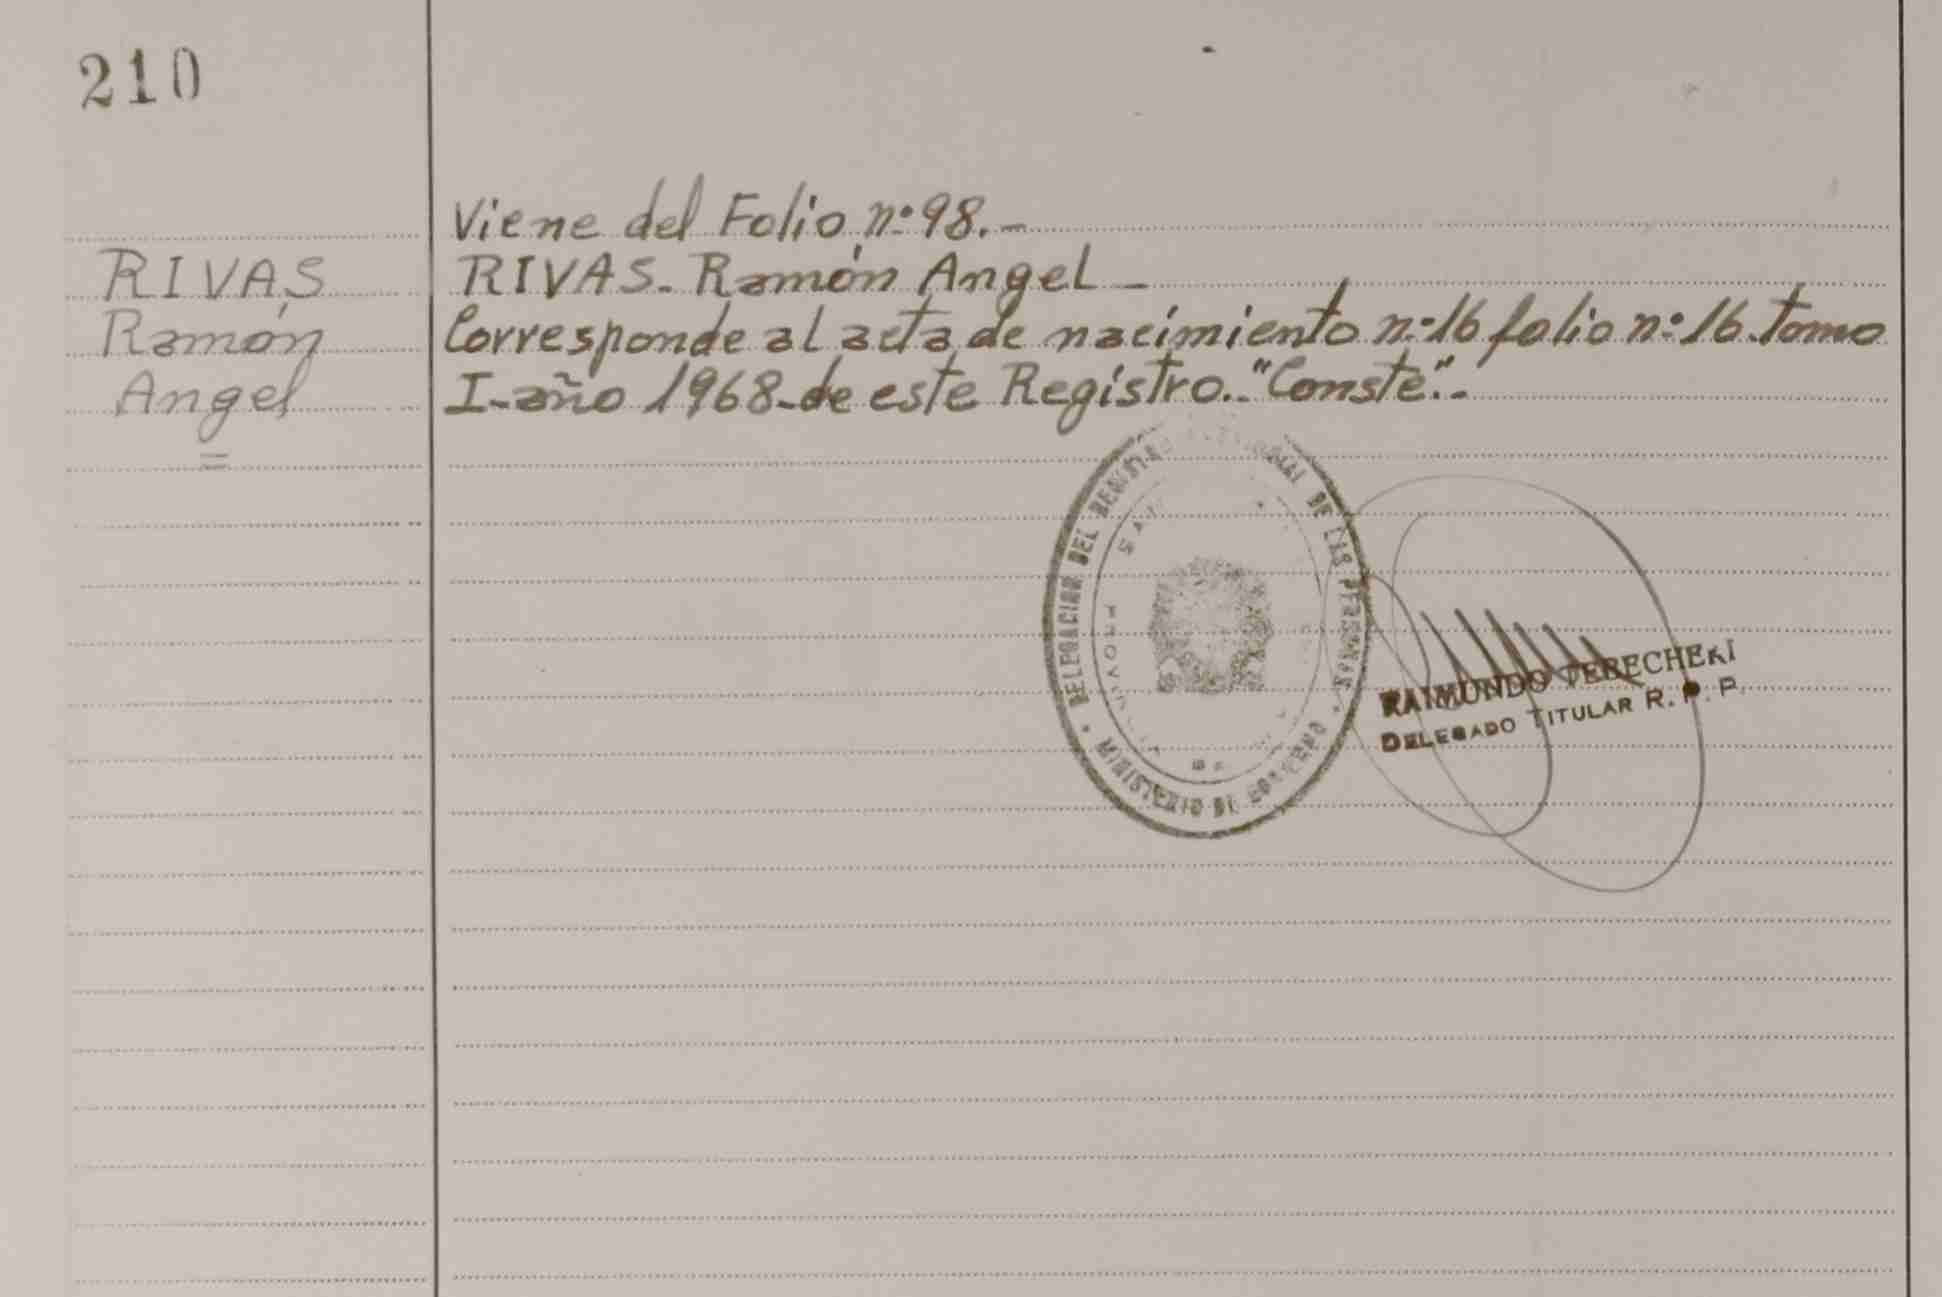 210
Viene del Folio n.º 98.-
RIVAS
Ramón
Angel
=
RIVAS. Ramón Angel -
Corresponde al acta de nacimiento n.º 16 folio n.º 16. tomo
I-año 1968-de este Registro.. "Conste".-
DELEGACION DEL REGISTRO DE LAS PERSONAS
MINISTERIO DE GOBIERNO
RAIMUNDO TERECHEKI
DELEGADO TITULAR R. P. P.